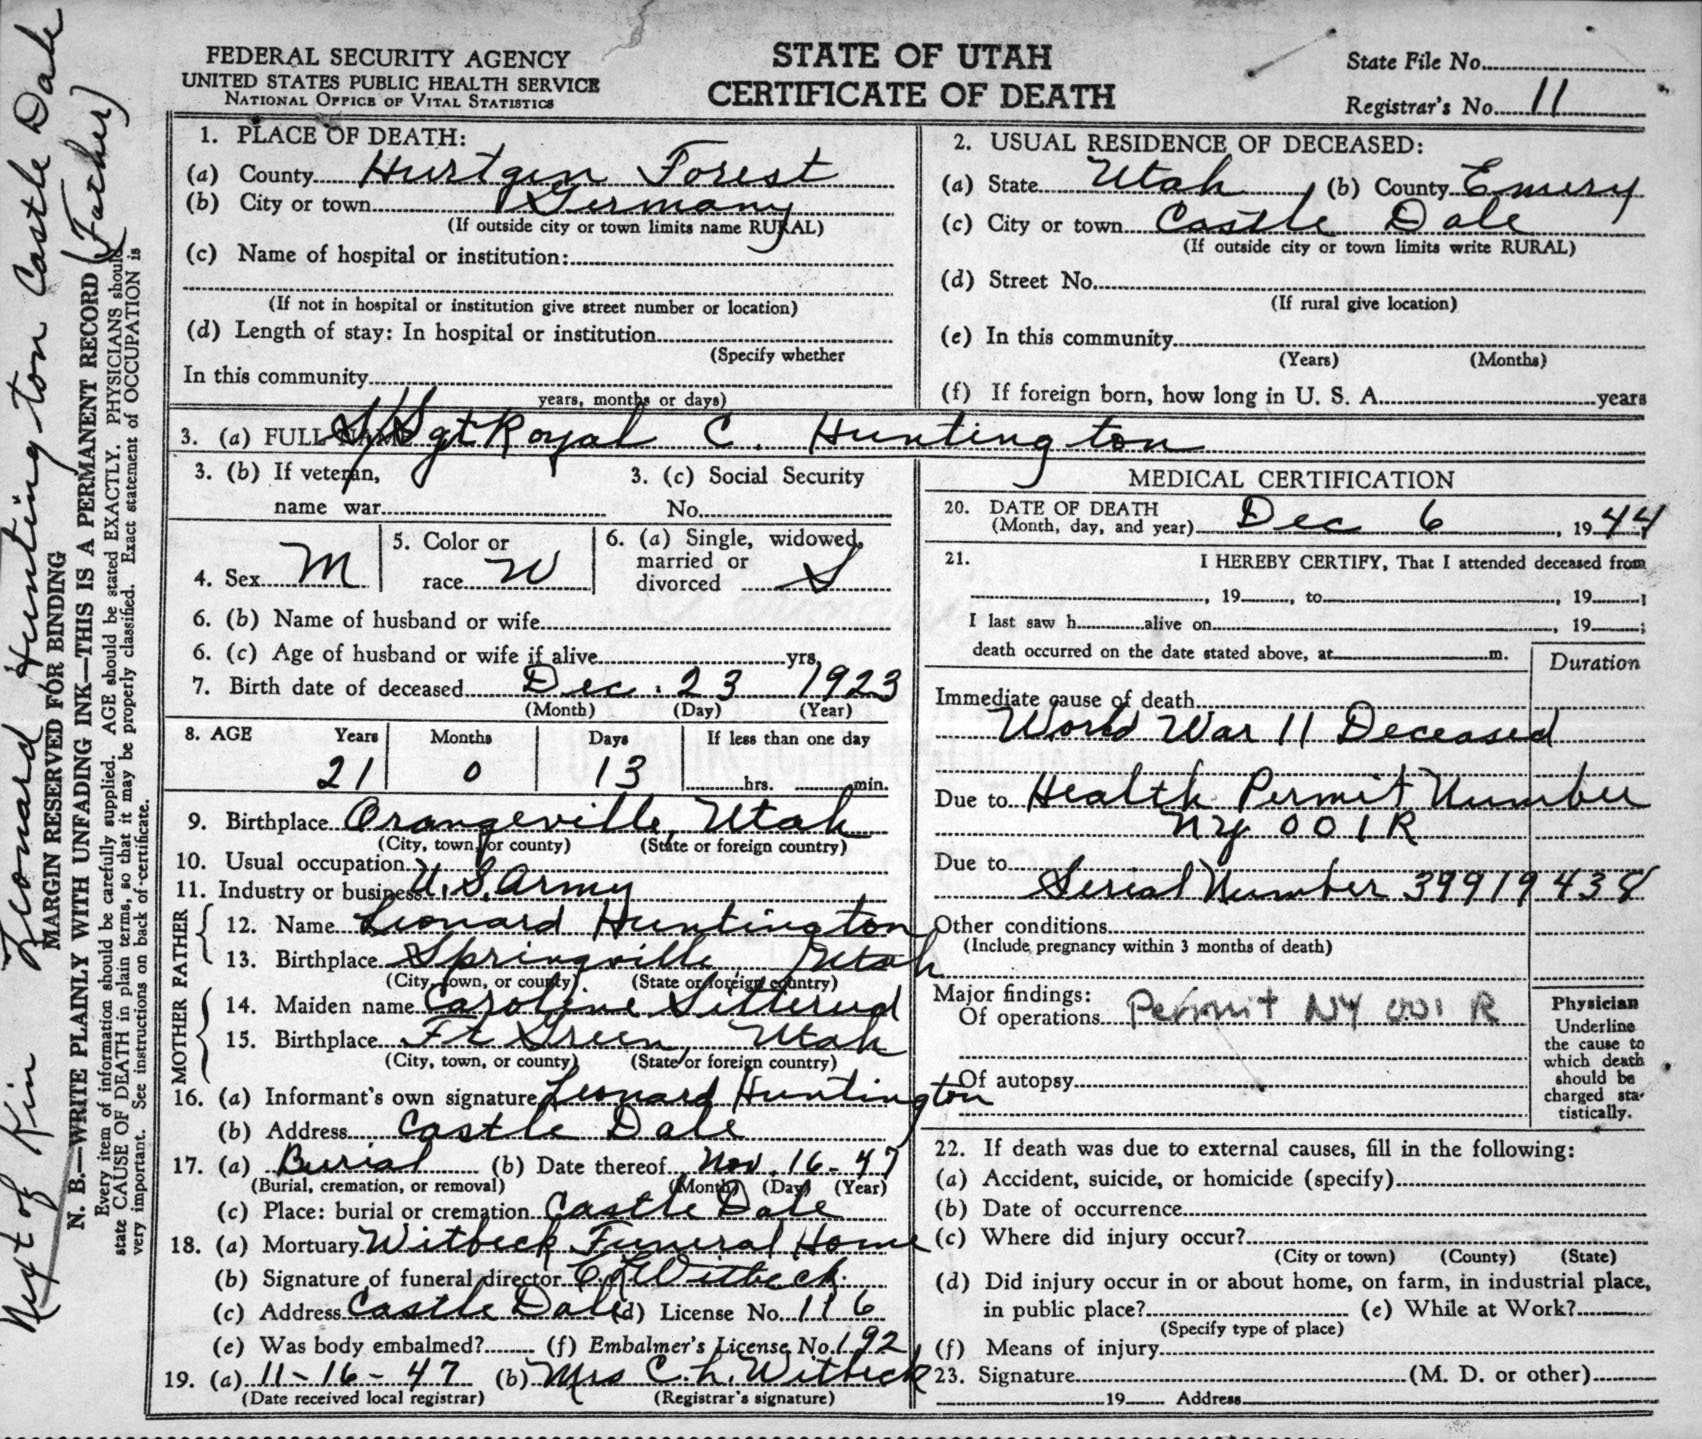 FEDERAL SECURITY AGENCY
UNITED STATES PUBLIC HEALTH SERVICE
NATIONAL OFFICE OF VITAL STATISTICS
STATE OF UTAH
CERTIFICATE OF DEATH
State File No.
Registrar's No. 11
1. PLACE OF DEATH:
(a) County Hurtgen Forest
(b) City or town Germany
(If outside city or town limits name RURAL)
(c) Name of hospital or institution:
(If not in hospital or institution give street number or location)
(d) Length of stay: In hospital or institution
(Specify whether
In this community
years, months or days)
2. USUAL RESIDENCE OF DECEASED:
(a) State Utah (b) County Emery
(c) City or town Castle Dale
(If outside city or town limits write RURAL)
(d) Street No.
(If rural give location)
(e) In this community
(Years) (Months)
(f) If foreign born, how long in U. S. A. years
3. (a) FULL NAME S/Sgt Royal C. Huntington
3. (b) If veteran,
name war
3. (c) Social Security
No.
4. Sex M
5. Color or
race W
6. (a) Single, widowed,
married or
divorced S
6. (b) Name of husband or wife
6. (c) Age of husband or wife if alive yrs.
7. Birth date of deceased Dec. 23 1923
(Month) (Day) (Year)
8. AGE Years Months Days If less than one day
21 0 13 hrs. min.
9. Birthplace Orangeville, Utah
(City, town, or county) (State or foreign country)
10. Usual occupation
11. Industry or business U.S. Army
FATHER
12. Name Leonard Huntington
13. Birthplace Springville Utah
(City, town, or county) (State or foreign country)
MOTHER
14. Maiden name Caroline Sitterud
15. Birthplace Ft Green, Utah
(City, town, or county) (State or foreign country)
16. (a) Informant's own signature Leonard Huntington
(b) Address Castle Dale
17. (a) Burial (b) Date thereof Nov. 16-47
(Burial, cremation, or removal) (Month) (Day) (Year)
(c) Place: burial or cremation Castle Dale
18. (a) Mortuary Witbeck Funeral Home
(b) Signature of funeral director C L Witbeck
(c) Address Castle Dale (d) License No. 116
(e) Was body embalmed? (f) Embalmer's License No. 192
19. (a) 11-16-47 (b) Mrs C. L. Witbeck
(Date received local registrar) (Registrar's signature)
MEDICAL CERTIFICATION
20. DATE OF DEATH
(Month, day, and year) Dec 6, 1944
21. I HEREBY CERTIFY, That I attended deceased from
, 19 , to , 19 ;
I last saw h alive on , 19 ;
death occurred on the date stated above, at m.
Duration
Immediate cause of death
World War 11 Deceased
Due to Health Permit Number
NY 001R
Due to
Serial Number 39919438
Other conditions
(Include pregnancy within 3 months of death)
Major findings:
Of operations Permit NY 001 R
Of autopsy
Physician
Underline
the cause to
which death
should be
charged sta-
tistically.
22. If death was due to external causes, fill in the following:
(a) Accident, suicide, or homicide (specify)
(b) Date of occurrence
(c) Where did injury occur?
(City or town) (County) (State)
(d) Did injury occur in or about home, on farm, in industrial place,
in public place? (e) While at Work?
(Specify type of place)
(f) Means of injury
23. Signature (M. D. or other)
19 Address
Next of Kin Leonard Huntington Castle Dale
(Father)
MARGIN RESERVED FOR BINDING
N. B.—WRITE PLAINLY WITH UNFADING INK—THIS IS A PERMANENT RECORD
Every item of information should be carefully supplied. AGE should be stated EXACTLY. PHYSICIANS should
state CAUSE OF DEATH in plain terms, so that it may be properly classified. Exact statement of OCCUPATION is
very important. See instructions on back of certificate.